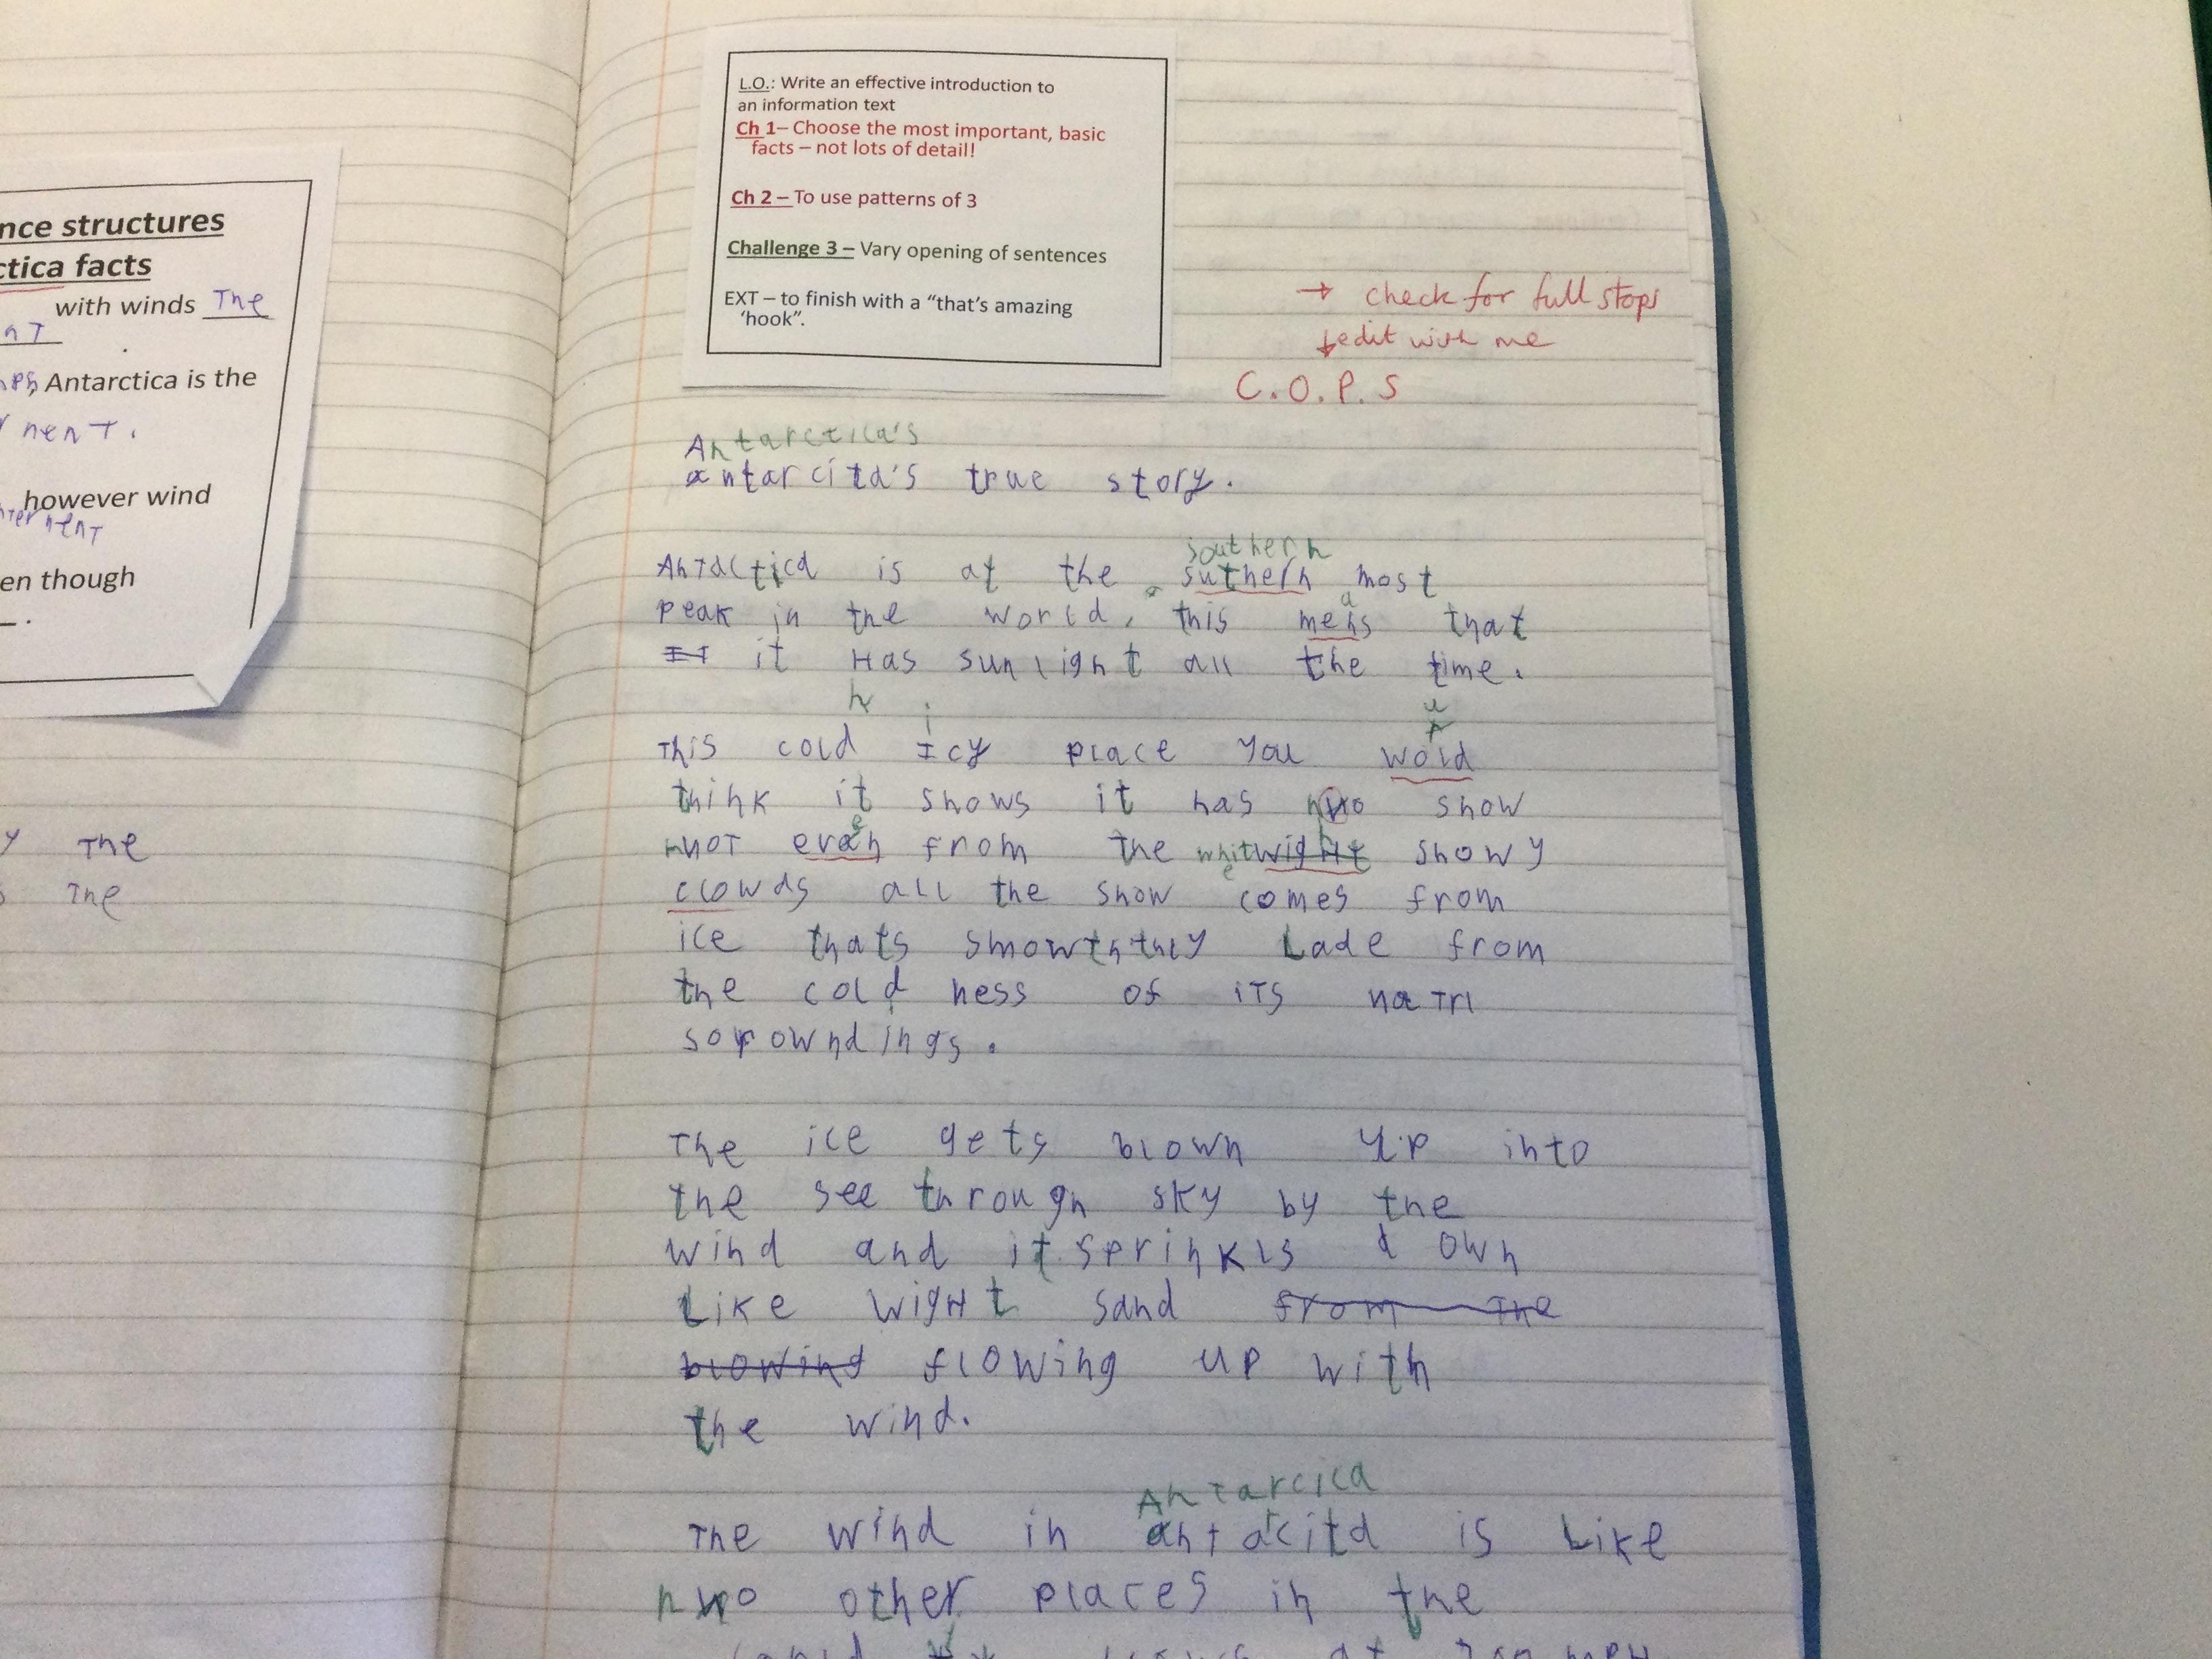 nce structures
ctica facts
with winds The
nT
Antarctica is the
nenT.
however wind
en though
y The
s The
L.O.: Write an effective introduction to
an information text
Ch 1– Choose the most important, basic
facts – not lots of detail!
Ch 2 – To use patterns of 3
Challenge 3 – Vary opening of sentences
EXT – to finish with a “that’s amazing
‘hook”.
→ check for full stops
edit with me
C.O.P.S
Antarctica's
antarcita's true story.
southern
Antactica is at the suthern most
a
peak in the world, this mens that
it Has sunlight all the time.
h
i
u
This cold Icy place you wold
think it snows it has no snow
e
not evan from the white wight snowy
clowds all the snow comes from
ice thats smowththly Lade from
the cold ness of its natrl
sorowndings.
The ice gets blown up into
the see through sky by the
wind and it sprinkls down
Like wight sand from the
blowind flowing up with
the wind.
Antarcica
The wind in antarcita is Like
no other places in the